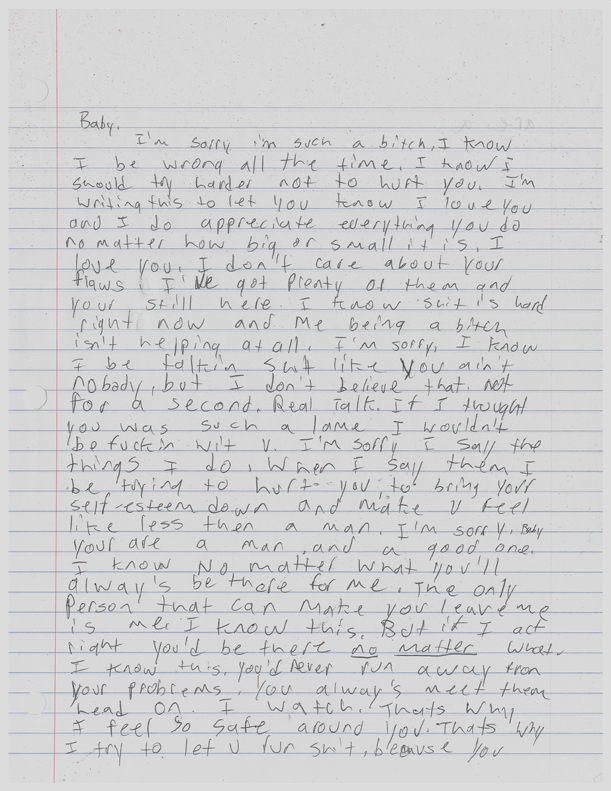 Baby.
I'm sorry i'm such a bitch, I know
I be wrong all the time. I know I
should try harder not to hurt you. I'm
writing this to let you know I love you
and I do appreciate everything you do
no matter how big or small it is. I
love you. I don't care about your
flaws. I've got plenty of them and
your still here. I know shit is hard
right now and me being a bitch
isn't helping at all. I'm sorry, I know
I be talkin shit like you ain't
nobady, but I don't believe that. not
for a second. Real Talk. If I thought
you was such a lame I wouldn't
be fuckin wit U. I'm sorry I say the
things I do. When I say them I
be trying to hurt you, to bring your
self-esteem down and make U feel
like less then a man. I'm sorry. Baby
your are a man, and a good one.
I know No matter what you'll
alway's be there for me. The only
Person that can make you leave me
is me. I know this. But if I act
right you'd be there no matter what.
I know this. you'd never run away from
your problems. You alway's meet them
head on. I watch. Thats why
I feel so safe around you. Thats why
I try to let U run shit, because you